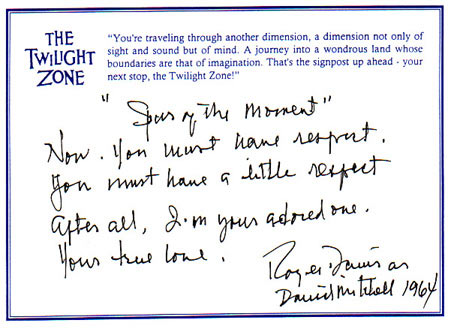 THE
TWILIGHT
ZONE
"You're traveling through another dimension, a dimension not only of
sight and sound but of mind. A journey into a wondrous land whose
boundaries are that of imagination. That's the signpost up ahead - your
next stop, the Twilight Zone!"
"Spur of the Moment"
Now. You must have respect.
You must have a little respect
after all, I'm your adored one.
Your true love.
Roger Davis as
David Mitchell 1964